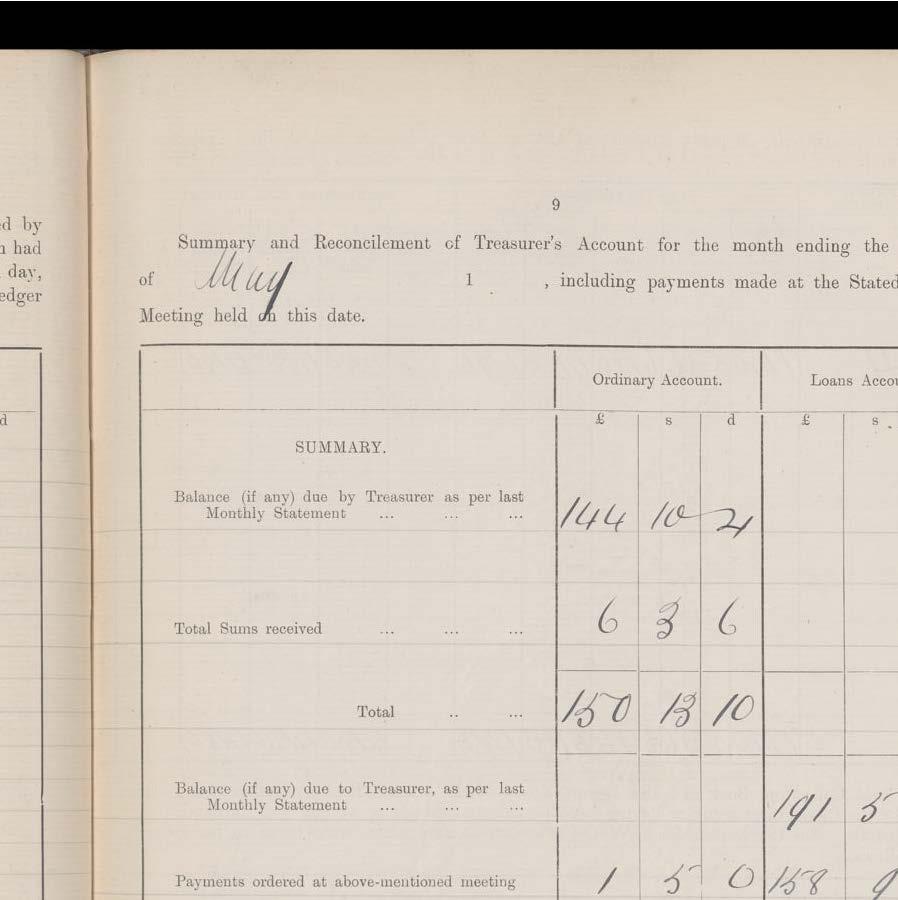 ed by
n had
day,
edger
d
9
Summary and Reconcilement of Treasurer's Account for the month ending the
of May 1 , including payments made at the Stated
Meeting held on this date.
Ordinary Account. Loans Accou
£ s d £ s .
SUMMARY.
Balance (if any) due by Treasurer as per last
Monthly Statement ... ... ... 144 10 4
Total Sums received ... ... ... 6 3 6
Total .. ... 150 13 10
Balance (if any) due to Treasurer, as per last
Monthly Statement ... ... ... 191 5
Payments ordered at above-mentioned meeting 1 5 0 158 9